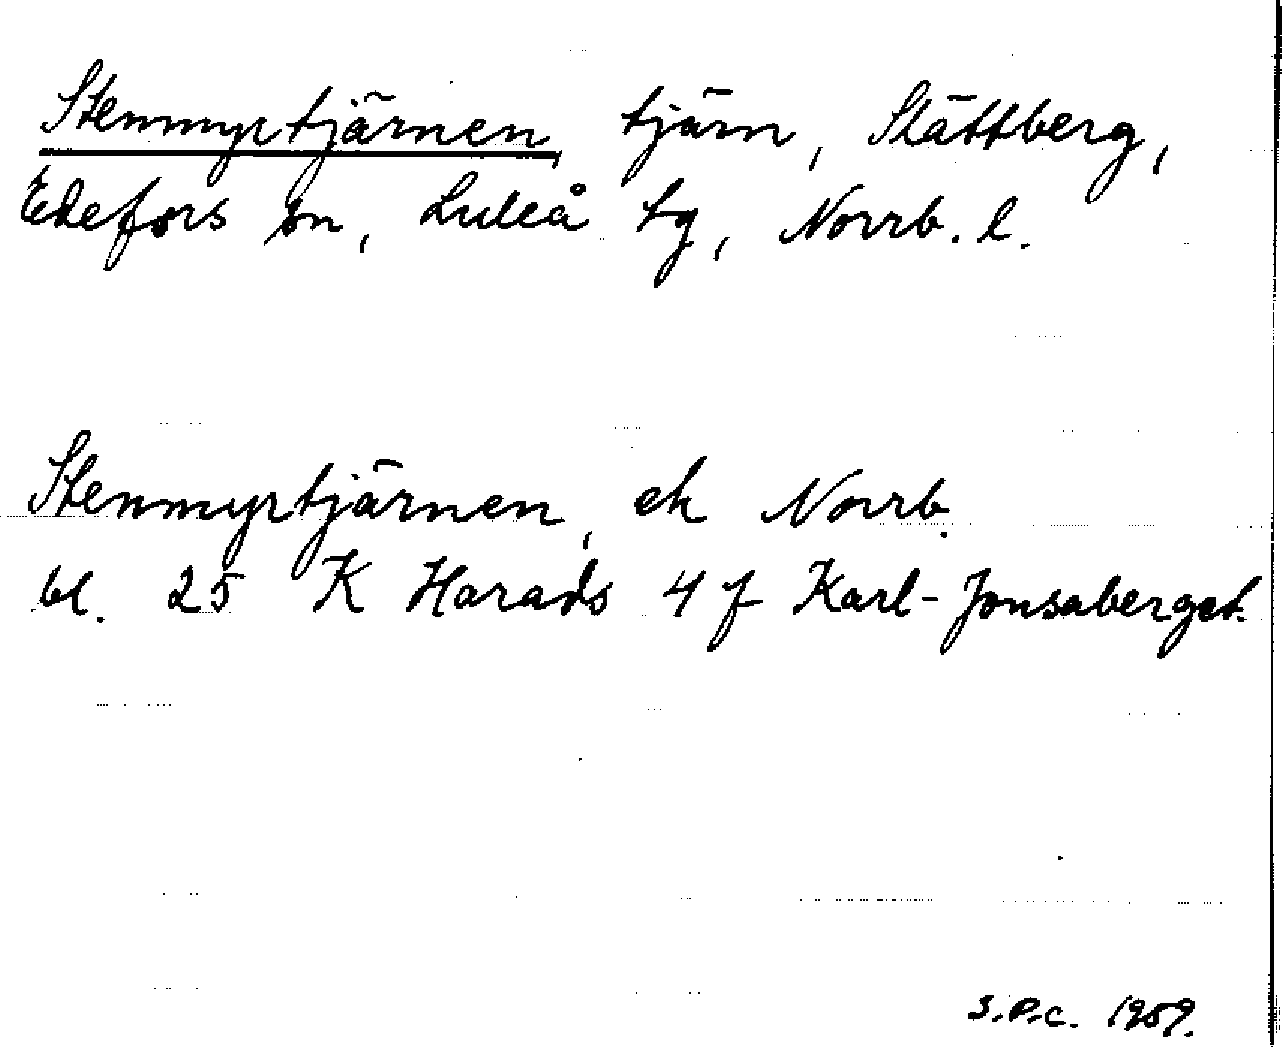 Stenmyrtjärnen, tjärn, Slättberg,
Edefors sn, Luleå tg, Norrb. l.
Stenmyrtjärnen, ek Norrb.
bl. 25 K Harads 4 f Karl-Jonsaberget.
S.P.C. 1959.